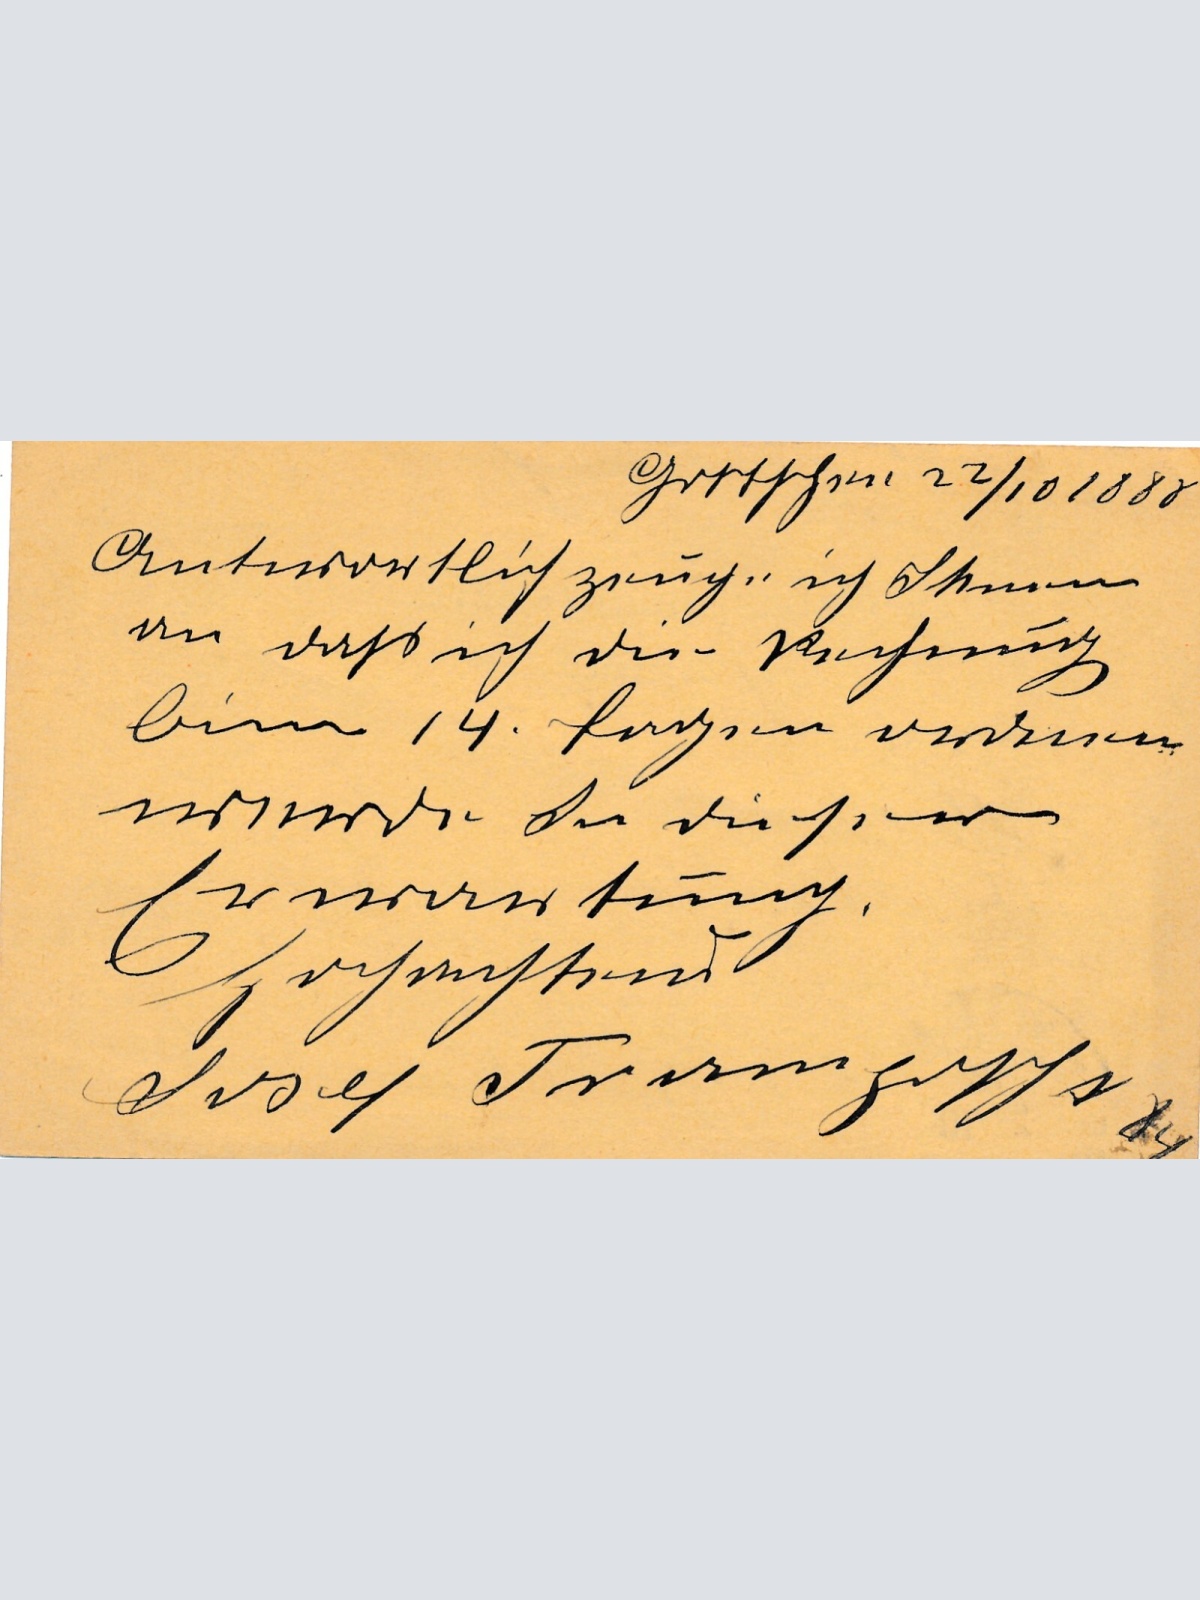 Gottschee 22/10 1888
Antwortlich zeuge ich Ihnen
an daß ich die Rechnung
binn 14. Tagen ordnen
werde In dieser
Erwartung.
Hochachtend
Josef